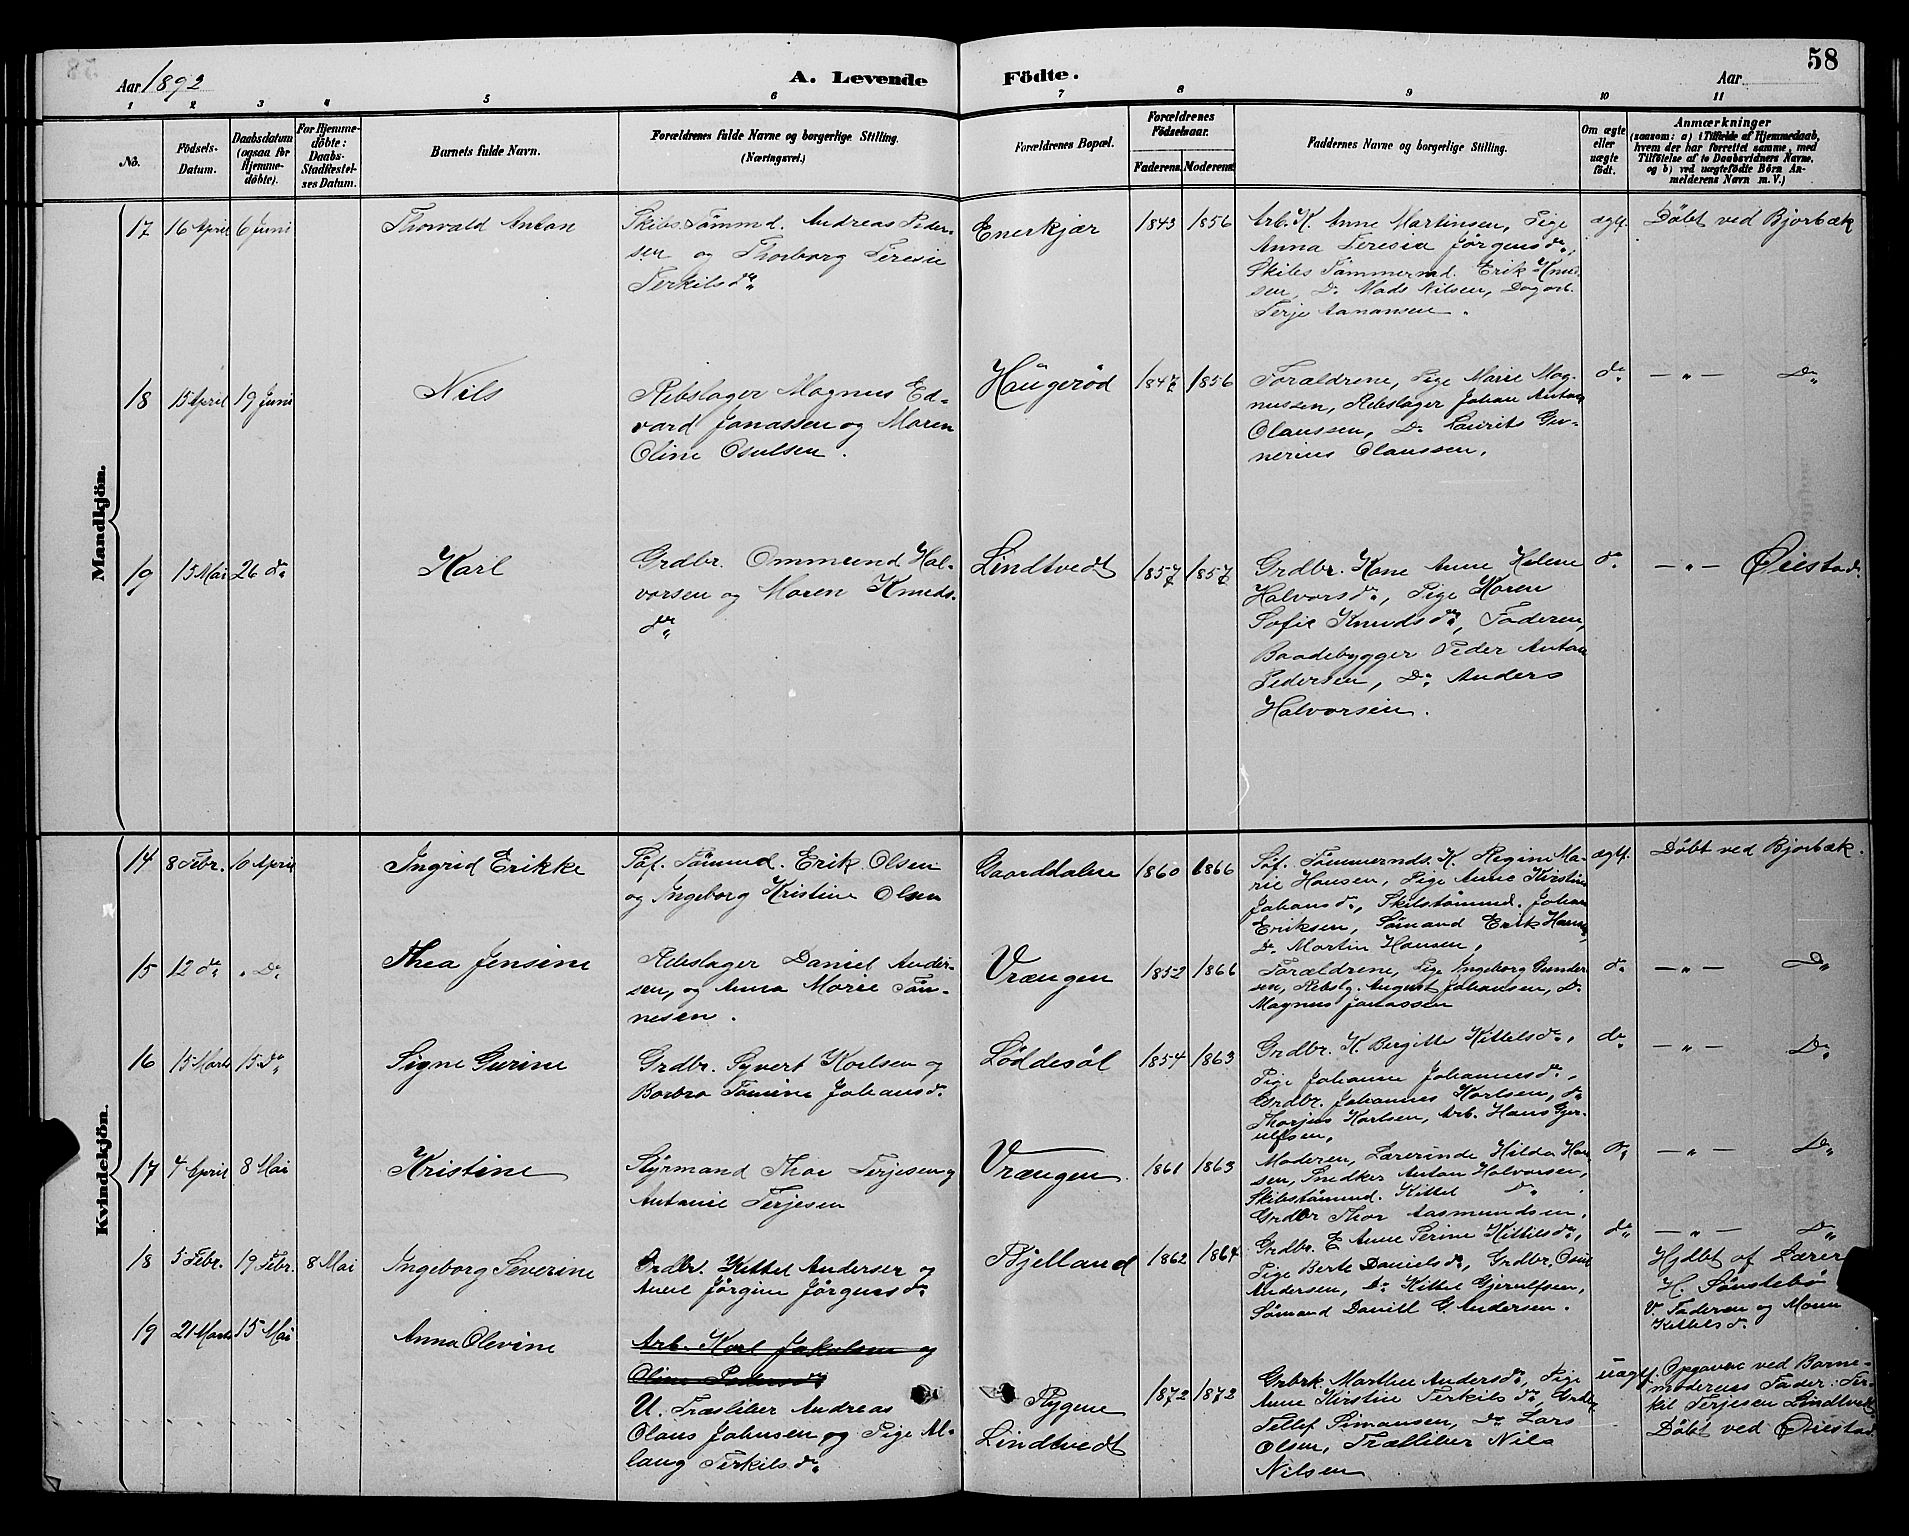 58
Aar 1892
A. Levende Födte.
Aar
1 2 3 4 5 6 7 8 9 10 11
No.
Födsels-Datum.
Daabsdatum (ogsaa for Hjemme-döbte).
For Hjemme-döbte: Daabs-Stadfæstel-ses Datum.
Barnets fulde Navn.
Forældrenes fulde Navne og borgerlige Stilling.
(Næringsvei.)
Forældrenes Bopæl.
Forældrenes Födselsaar.
Faderens. Moderens.
Faddernes Navne og borgerlige Stilling.
Om ægte eller uægte födt.
Anmærkninger
(saasom: a) i Tilfælde af Hjemmedaab,
hvem der har forrettet samme, med
Tilföielse af to Daabsvidners Navne,
og b) ved uægtefödte Börn An-
melderens Navn m. V.)
Mandkjön.
17 16 April 6 Juni Thorvald Anton
Skibs Tömmd. Andreas Peder-
sen og Thorborg Teresie
Terkilsdr.
Enerkjær 1843 1856
Arb. K. Anne Martinsen, Pige
Anna Teresia Jörgensdr.,
Skibs Tömmermd. Erik Knud-
sen, Do. Mads Nilsen, Dagarb.
Terje Aanansen.
ægtf. Döbt ved Bjorbæk
18 15 April 19 Juni Nils
Rebslager Magnus Ed-
vard Jonassen og Maren
Oline Osulsen.
Haugeröd 1847 1856
Forældrene, Pige Marie Mag-
nussen, Rebslager Johan Anton
Olaussen, Do. Laurits
Olaussen.
do. — „ — Do.
19 15 Mai 26 do. Karl
Grdbr. Ommund Hal-
vorsen og Maren Knuds-
dr.
Lindtvedt 1857 1857
Grdbr. Kone Anne Helene
Halvorsdr., Pige Karen
Sofie Knudsdr., Faderen,
Baadebygger Peder Anton
Pedersen, Do. Anders
Halvorsen.
do. — „ — Öiestad.
Kvindekjön.
14 8 Febr. 10 April Ingrid Erikke
Söf. Tömmd. Erik Olsen
og Ingeborg Kristine Olsen
Gaarddalen 1860 1866
Söf. Tömmermds. K. Regine Ma-
rie Hansen, Pige Anne Kirstine
Johansdr., Skibstömmd. Johan
Eriksen, Sömand Erik Hansen,
Do. Martin Hansen,
ægtf. Döbt ved Bjorbæk.
15 12 do. „ Do. Thea Jensine
Rebslager Daniel Ander-
sen, og Anna Marie Tön-
nesen.
Vrængen 1852 1866
Forældrene, Pige Ingeborg Gunder-
sen, Rebslg. August Johansen, Do.
Magnus Jonassen
do. — „ — Do.
16 15 Marts 15 Do. Signe Gurine
Grdbr. Syvert Karlsen og
Borbro Tomine Johansdr.
Löddesöl 1854 1863
Grdbr. K. Bergitte Kittelsdr.,
Pige Johanne Johannesdr.,
Grdbr. Johannes Karlsen, do.
Thorjus Karlsen, Arb. Hans Gjer-
ulfsen,
do. — „ — Do.
17 4 April 8 Mai Kristine
Styrmand Thor Terjesen og
Antonie Terjesen
Vrængen. 1861 1863
Moderen, Lærerinde Hilda Han-
sen, Snedker Anton Halvorsen,
Skibstömmd. Kittel Do.,
Grdbr Thor Aasmundsen.
do. — „ — Do.
18 5 Febr. 19 Febr. 8 Mai Ingeborg Severine
Grdbr. Kittel Andersen og
Anne Jörgine Jörgensdr.
Bjelland 1862 1864
Grdbr. E Anne Serine Kittelsdr.,
Pige Berte Danielsdr., Grdbr. Osul
Andersen, Do. Kittel Gjerulfsen,
Sömand Daniel G. Andersen.
do. — „ — Do.
Hjdbt af Lærer
H. Sönstebö
V. Faderen og Maren
Kittelsdr.
19 21 Marts 15 Mai Anna Olevine
Arb. Karl Jakobsen og
Oline Pedersdr.
U. Træsliber Andreas
Olaus Johnsen og Pige As-
laug Terkilsdr.
Rygene
Lindtvedt
1872 1872
Grbrk Marthee Andersdr., Pige
Anne Kirstine Terkilsdr., Grdbr.
Tellef Simonsen, do. Lars
Olsen, Træsliber Nils
Nilsen
uægtf. Opgaven ved Barne-
moderens Fader: Ter-
kil Terjesen Lindtvedt
Döbt ved Öiestad